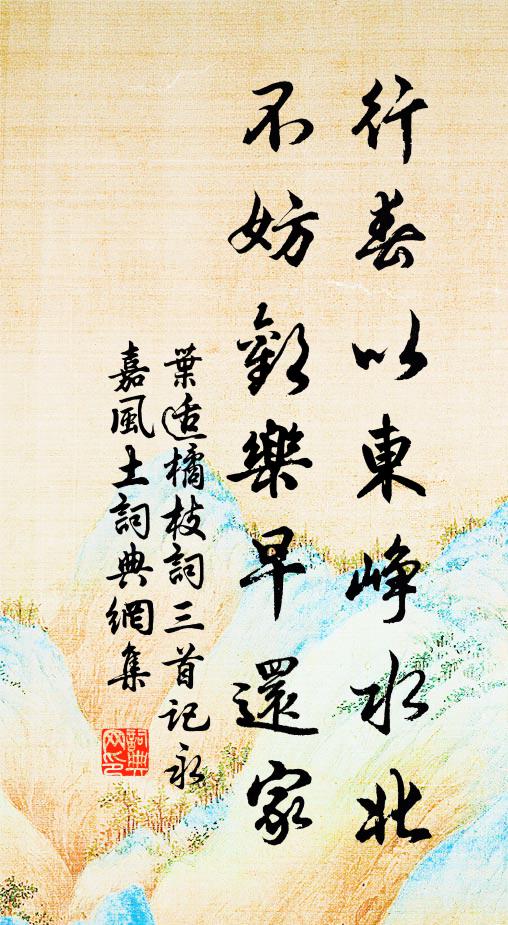 行春以東崢水北
不妨歡樂早還家
葉適橘枝詞三首記永
嘉風土詞典網集